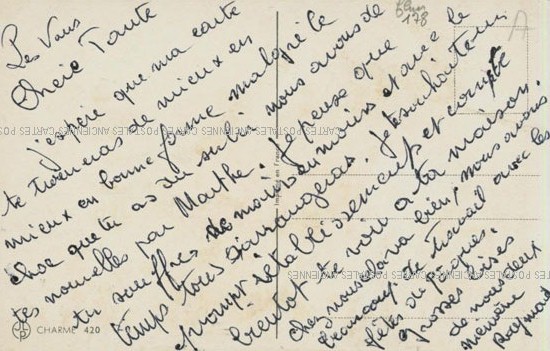 Les Vans
Chère Tante
j'espère que ma carte
te trouveras de mieux en
mieux en bonne forme malgré le
choc que tu as du subir nous avons de
tes nouvelles par Marthe. Je pense que
tu souffres de moins en moins et avec le
temps tous s'arrangeras. Je te souhaite un
prompt rétablissement et compte
bientot te voir a ta maison.
Chez nous tout va bien, nous avons
beaucoup de travail avec les
fêtes de Pâques.
grosses bises
de nous deux
Raymond
178
A
Imprimé en France
CHARME 420
CARTES POSTALES ANCIENNES CARTES POSTALES ANCIENNES
CARTES POSTALES ANCIENNES CARTES POSTALES ANCIENNES